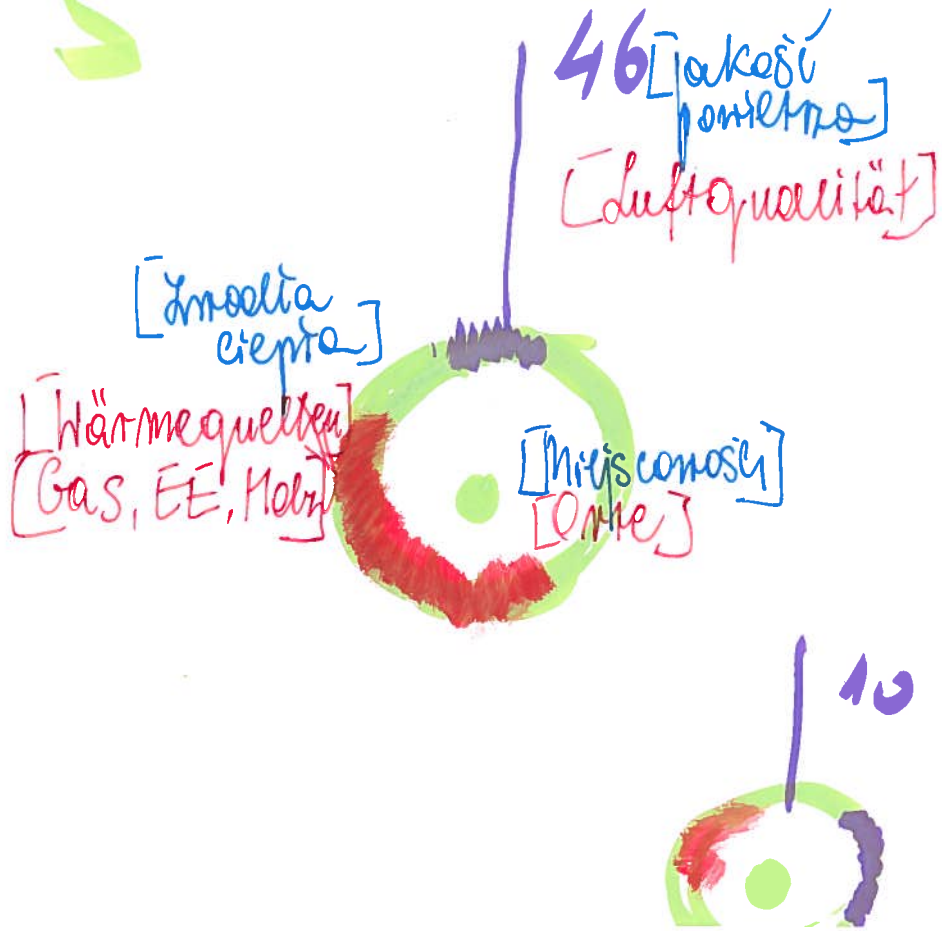 46 [jakość
powietrza]
[Luftqualität]
[źrodła
ciepła]
[Wärmequellen]
[Gas, EE, Holz]
[Miejscowości]
[Orte]
10